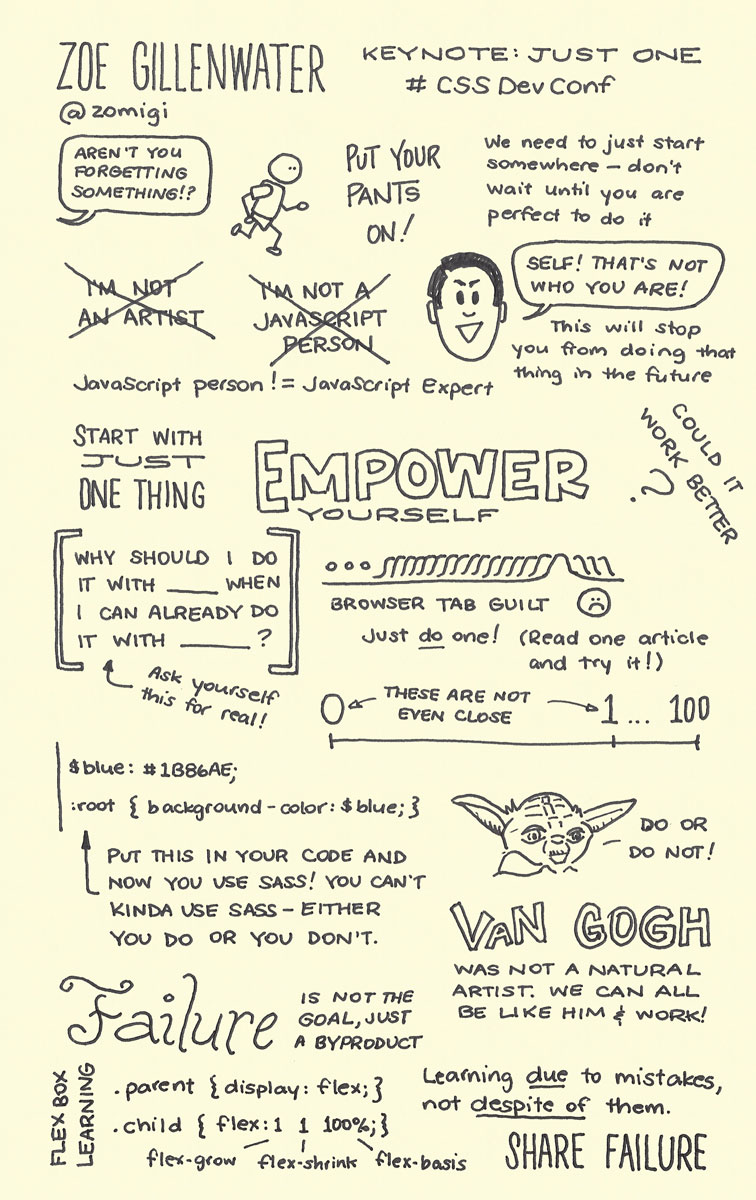 ZOE GILLENWATER
@zomigi
KEYNOTE: JUST ONE
# CSS Dev Conf
AREN'T YOU
FORGETTING
SOMETHING!?
PUT YOUR
PANTS
ON!
We need to just start
somewhere – don't
wait until you are
perfect to do it
I'M NOT
AN ARTIST
I'M NOT A
JAVASCRIPT
PERSON
SELF! THAT'S NOT
WHO YOU ARE!
This will stop
you from doing that
thing in the future
JavaScript person != JavaScript Expert
START WITH
JUST
ONE THING
EMPOWER
YOURSELF
COULD IT
WORK BETTER
?
WHY SHOULD I DO
IT WITH ____ WHEN
I CAN ALREADY DO
IT WITH ______ ?
Ask yourself
this for real!
BROWSER TAB GUILT
Just do one! (Read one article
and try it!)
0 THESE ARE NOT 1 ... 100
EVEN CLOSE
$blue: #1B86AE;
:root { background-color: $blue; }
PUT THIS IN YOUR CODE AND
NOW YOU USE SASS! YOU CAN'T
KINDA USE SASS – EITHER
YOU DO OR YOU DON'T.
DO OR
DO NOT!
VAN GOGH
WAS NOT A NATURAL
ARTIST. WE CAN ALL
BE LIKE HIM & WORK!
Failure
IS NOT THE
GOAL, JUST
A BYPRODUCT
FLEX BOX
LEARNING
.parent { display: flex; }
.child { flex: 1 1 100%; }
flex-grow flex-shrink flex-basis
Learning due to mistakes,
not despite of them.
SHARE FAILURE